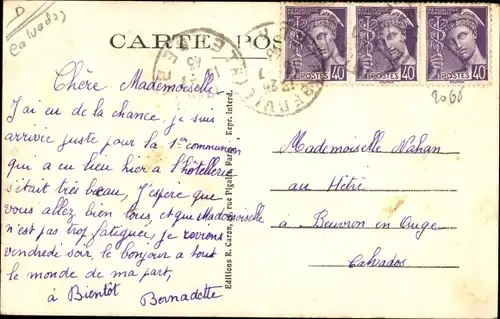 D
Calvados
CARTE POS
40
40
40
2068
Chère Mademoiselle
J'ai eu de la chance, je suis
arrivée juste pour la 1ère communion
qui a eu lieu hier à l'hôtellerie
s'était très beau, J'espère que
vous allez bien tous, et que Mademoiselle
n'est pas trop fatiguée, je rovrons
vendredi soir, le bonjour a tout
le monde de ma part,
à Bientôt Bernadette
Editions R. Caron, rue Pigalle, Par Repr. Interd.
Mademoiselle Nahan
au Hêtre
à Beuvron en Auge
Calvados